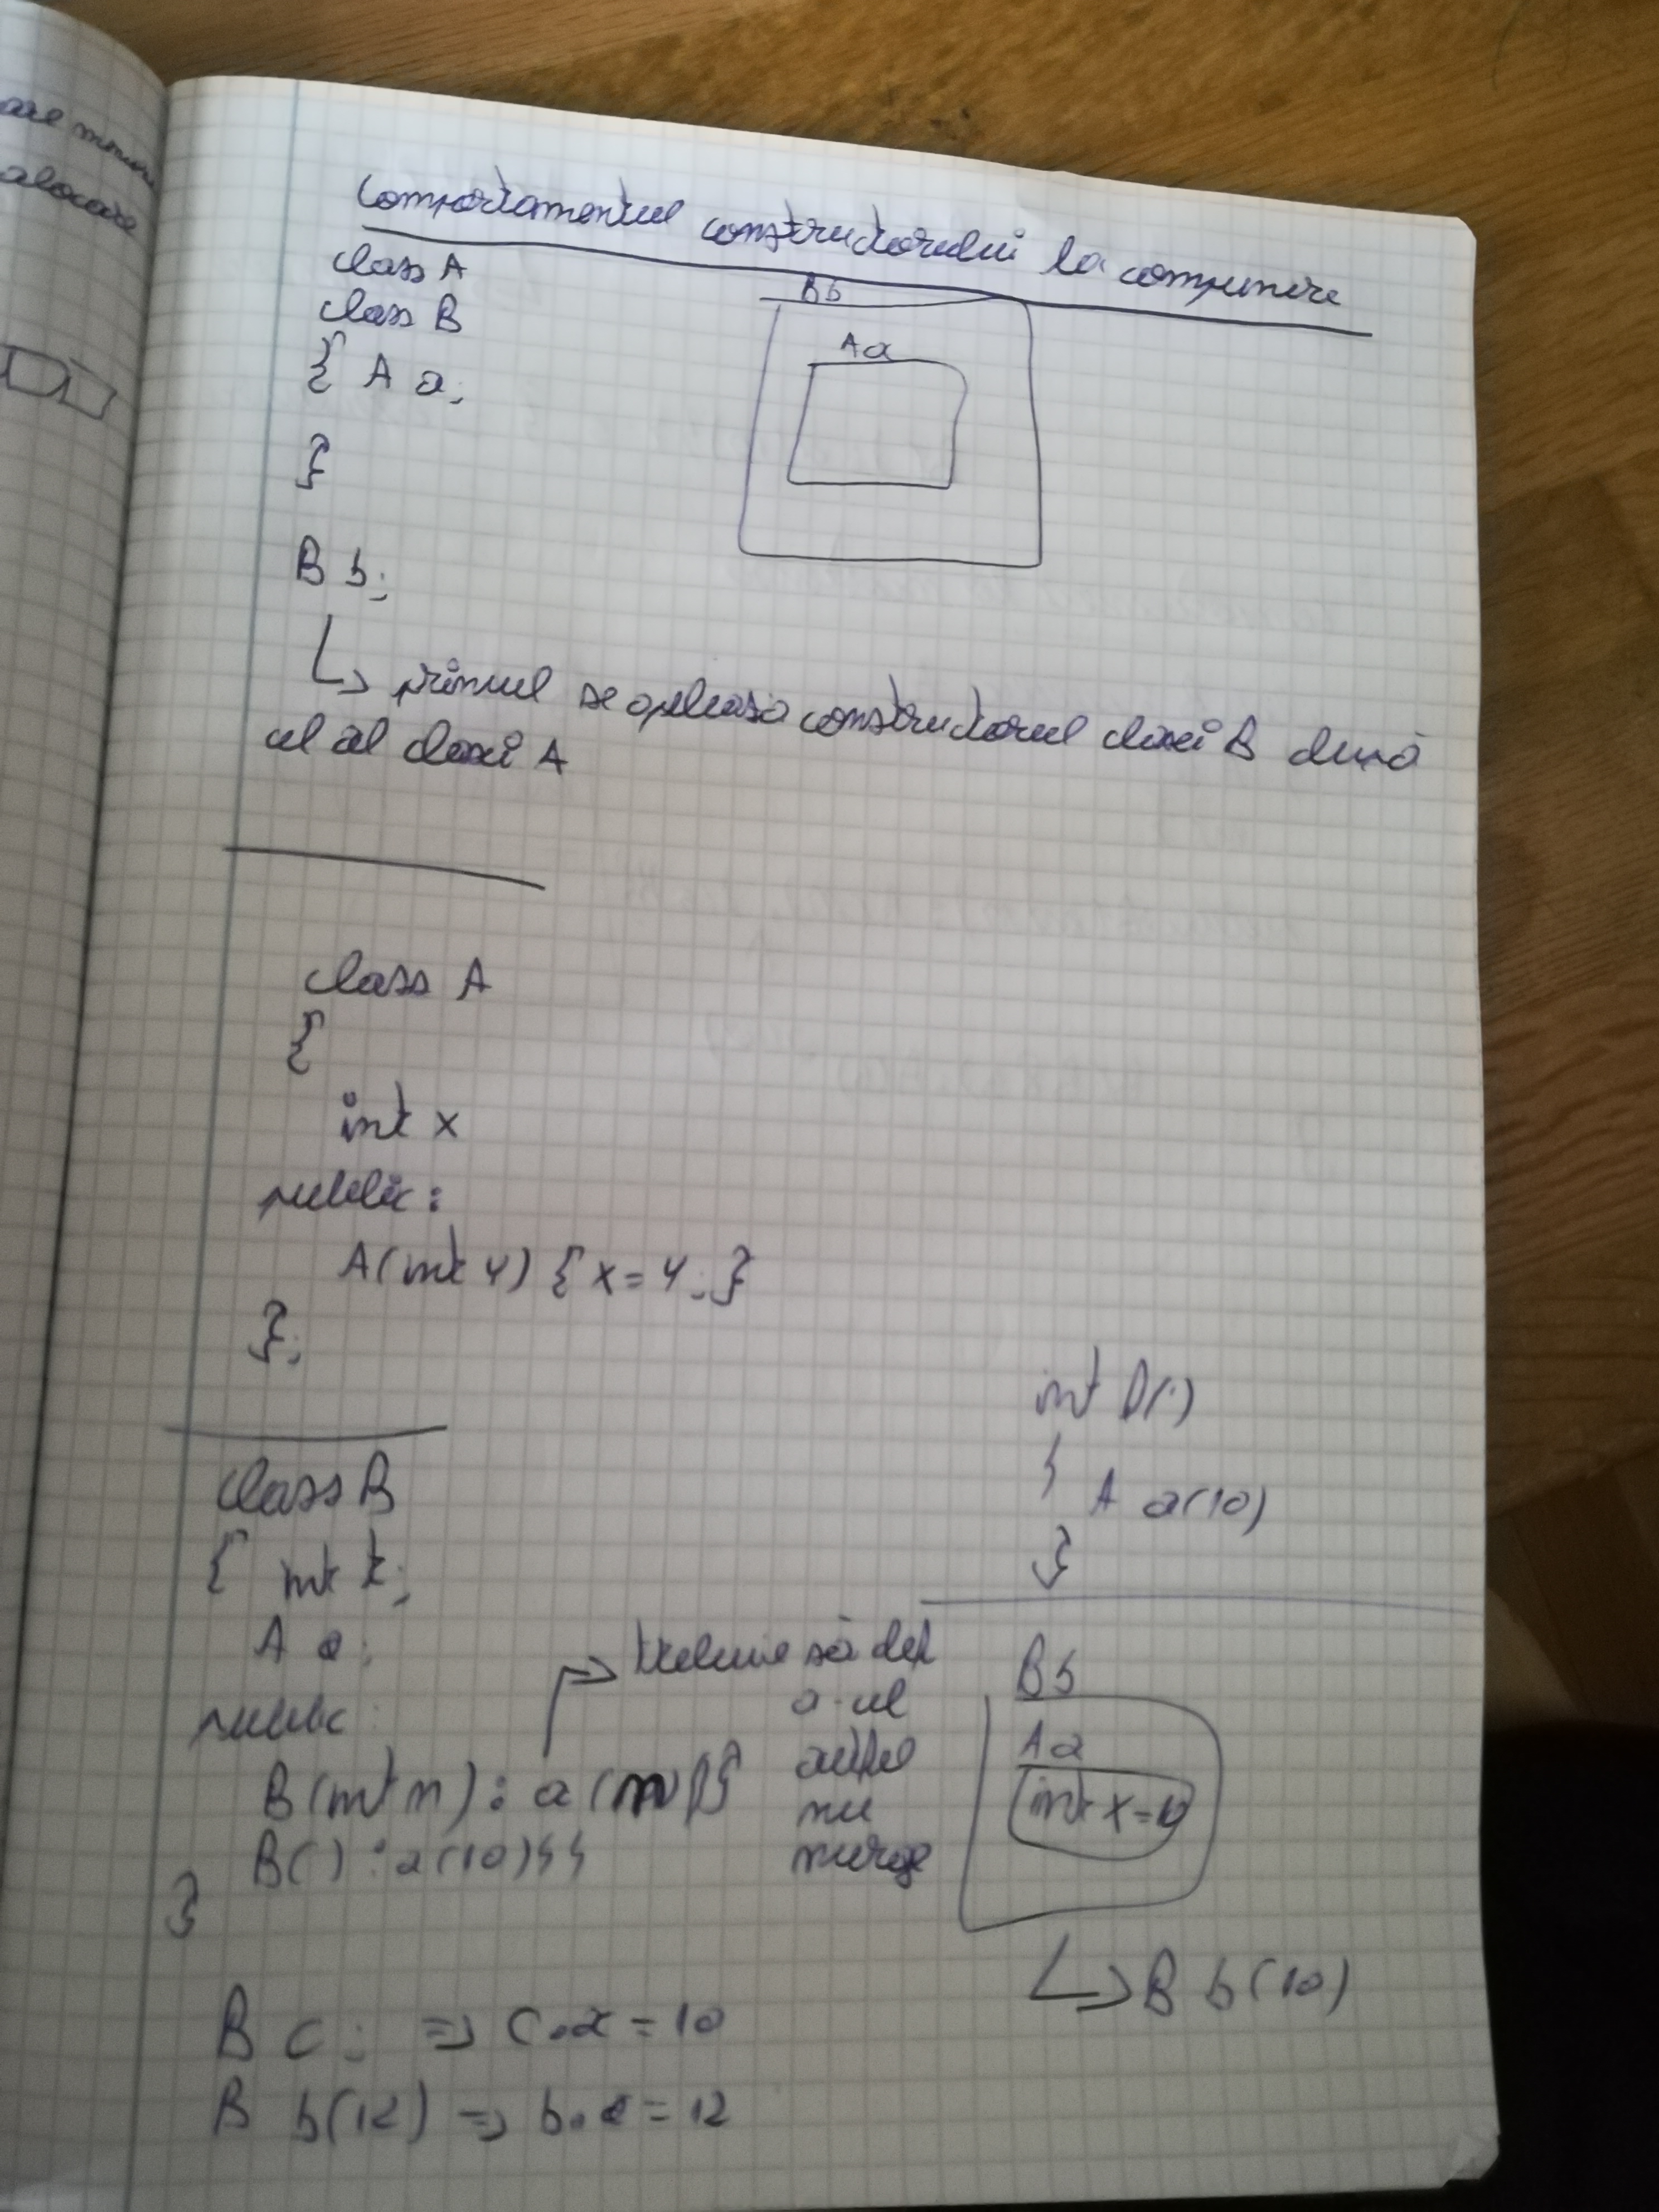 are
alocare
Comportamentul constructorului la compunere
class A
class B
{ A a;
}
B b
A a
B b;
↳ primul se apleasa constructorul clasei B după
cel al clasei A
class A
{
int x
public:
A(int y) { x = y; }
};
class B
{ int t;
A a;
public:
B(int n) : a(n){}
B() : a(10){}
}
→ trebuie să def
a-ul
altfel
nu
merge
B c; => c.a = 10
B b(12) => b.a = 12
int D()
{
A a(10)
}
B b
A a
int x = 10
↳ B b(10)